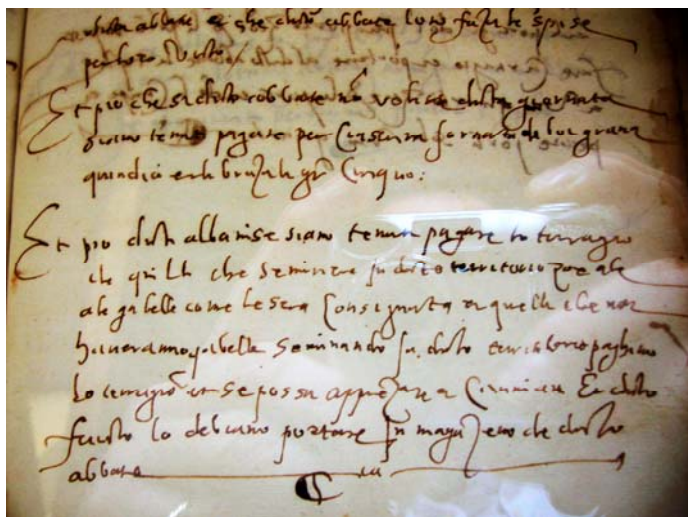 ditta abbate et che ditto abbate loro faza le spese
per loro victo
Et più che si ditto abbate non volisse ditta giornata
siano tenuti pagare per ciascuna fornata de lor grana
quindici et le braza le gr cinquo:
Et più ditti albanise siano tenuti pagare lo terragio
che quilli che seminira in ditto territorio per ale
ale gabelle come le sera consignata et quelli che non
haveranno gabelle seminando in ditto territorio paghino
lo terragio et se possa appezare a Et ditto
fructo lo debiano portare in magazeno de ditto
abbate